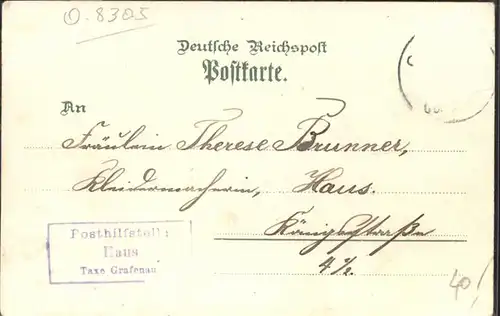 O. 8305
Deutsche Reichspost
Postkarte.
An
Fräulein Therese Brunner,
Kleidermacherin, Haus.
Königsstraße
4 ½.
Posthilfstelle
Haus
Taxe Grafenau
40/